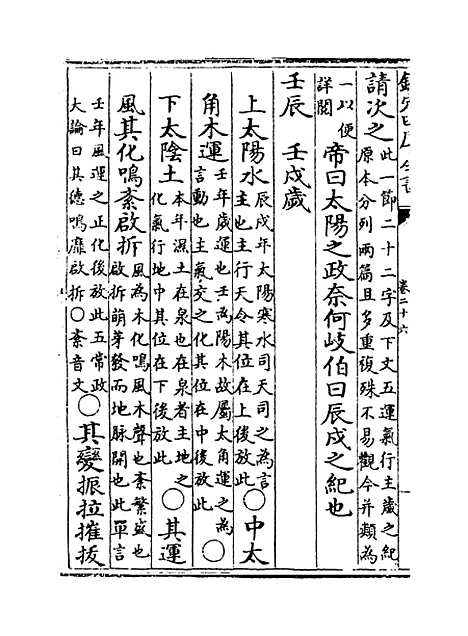 欽定四庫全書
卷二十六
請次之此一節二十二字及下文五運氣行主歲之紀
原本分列兩篇且多重復殊不易觀今并類為
一以便
詳閱
帝曰太陽之政奈何岐伯曰辰戌之紀也
壬辰 壬戌歲
上太陽水辰戌年太陽寒水司天司之為言
主也主行天令其位在上後放此○中太
角木運壬年歲運也壬為陽木故屬太角運之為
言動也主氣交之化其位在中後放此○
下太陰土本年濕土在泉也在泉者主地之
化氣行地中其位在下後放此○其運
風其化鳴紊啟拆風為木化鳴風木聲也紊繁盛也
啟拆萌芽發而地脉開也此單言
壬年風運之正化後放此五常政
大論曰其德鳴靡啟拆○紊音文○其變振拉摧拔